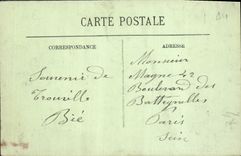 CARTE POSTALE
CORRESPONDANCE
ADRESSE
Souvenir de
Trouville
Bié
Monsieur
Magne 42
Boulevard des
Batteynolles
Paris
Seine